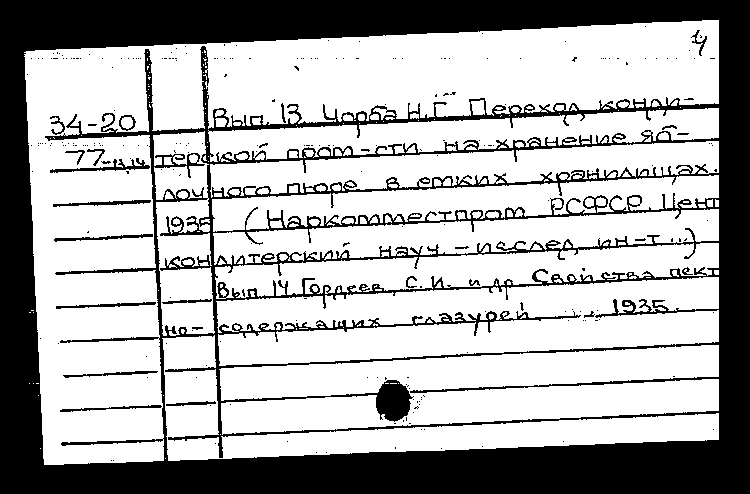 4
34-20 Вып. 13. Чорба Н.Г. Переход конди-
77-13,14 терской пром-сти на хранение яб-
лочного пюре в емких хранилищах.
1935 (Наркомместпром РСФСР. Цент
кондитерский науч.-исслед. ин-т...)
Вып. 14. Гордеев, С.И. и др Свойства пект
но-содержащих глазурей ... 1935.